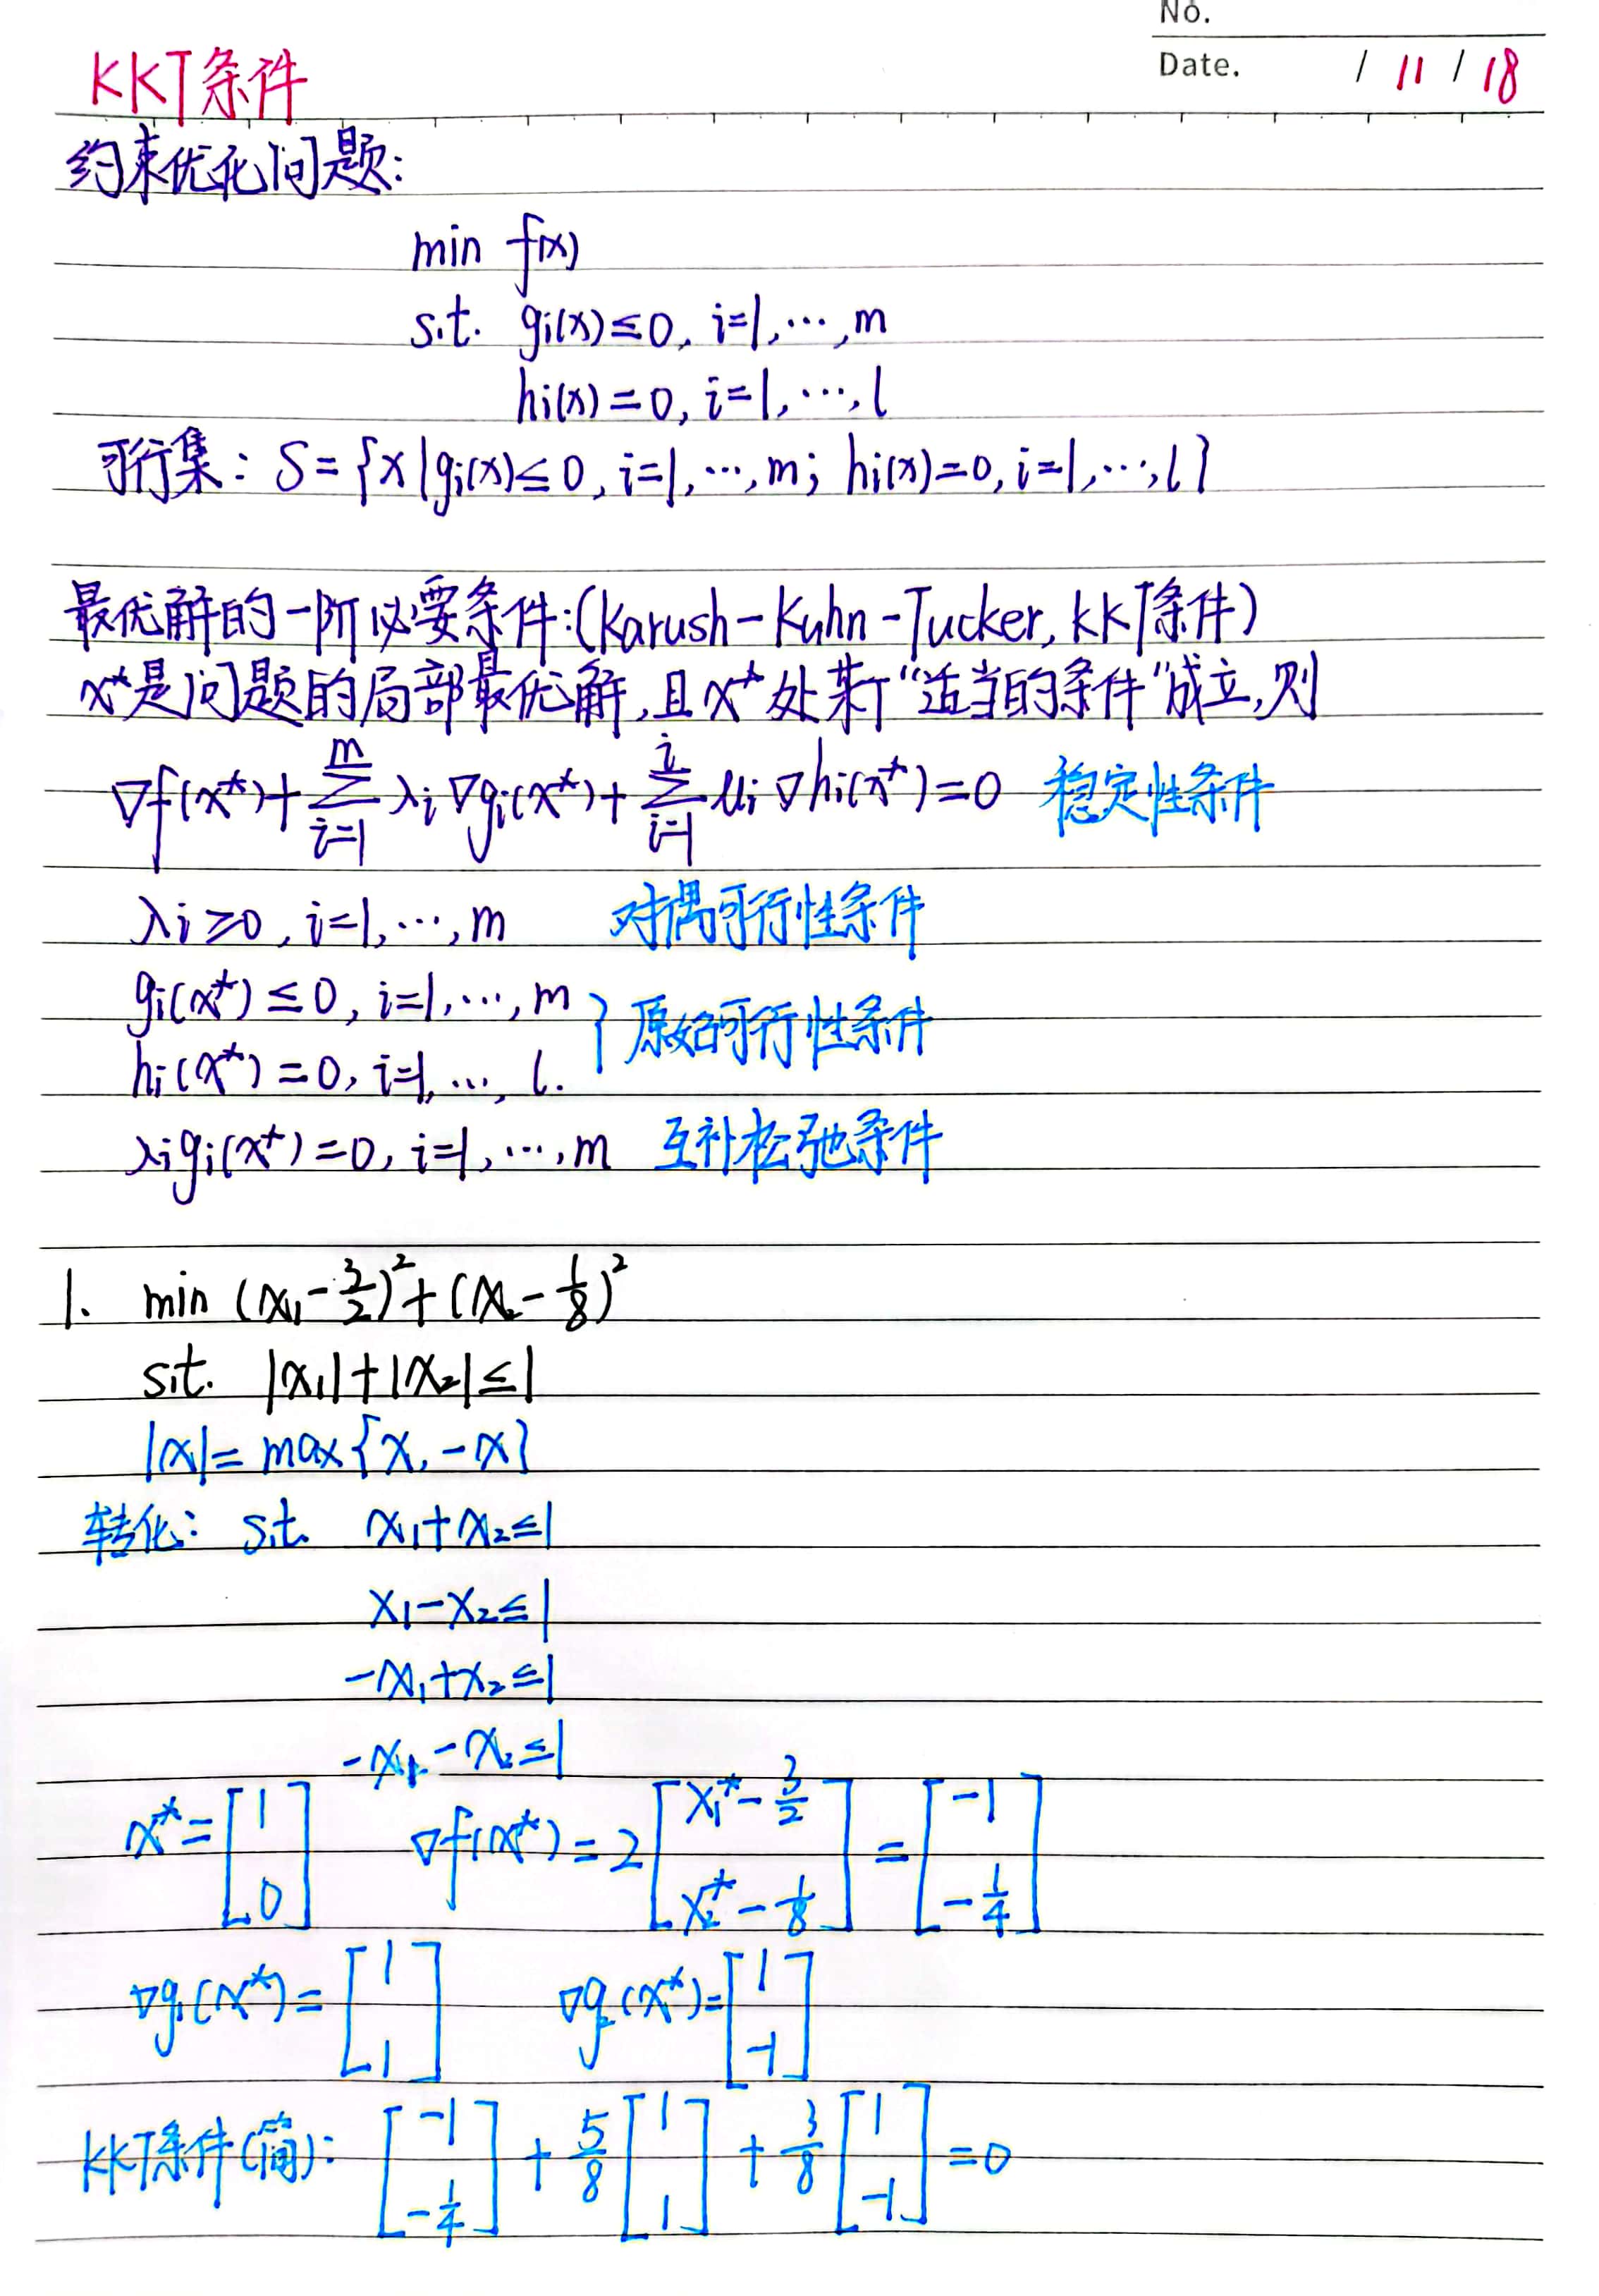 No.
Date. / 11 / 18
KKT条件
约束优化问题:
min f(x)
s.t. gi(x)≤0, i=1,⋯,m
hi(x)=0, i=1,⋯,l
可行集: S={x|gi(x)≤0, i=1,⋯,m; hi(x)=0, i=1,⋯,l}
最优解的一阶必要条件:(Karush-Kuhn-Tucker, KKT条件)
x*是问题的局部最优解,且x*处某个“适当的条件”成立,则
∇f(x*)+∑_{i=1}^{m} λi∇gi(x*)+∑_{i=1}^{l} μi∇hi(x*)=0 稳定性条件
λi≥0, i=1,⋯,m 对偶可行性条件
gi(x*)≤0, i=1,⋯,m } 原始可行性条件
hi(x*)=0, i=1,⋯, l.
λigi(x*)=0, i=1,⋯,m 互补松弛条件
1. min (x₁-3/2)²+(x₂-1/8)²
s.t. |x₁|+|x₂|≤1
|x|=max{x,-x}
转化: s.t. x₁+x₂≤1
x₁-x₂≤1
-x₁+x₂≤1
-x₁-x₂≤1
x*=[1 0] ∇f(x*)=2[x₁*-3/2 x₂*-1/8]=[-1 -1/4]
∇g₁(x*)=[1 1] ∇g₂(x*)=[1 -1]
KKT条件(简): [-1 -1/4]+5/8[1 1]+3/8[1 -1]=0